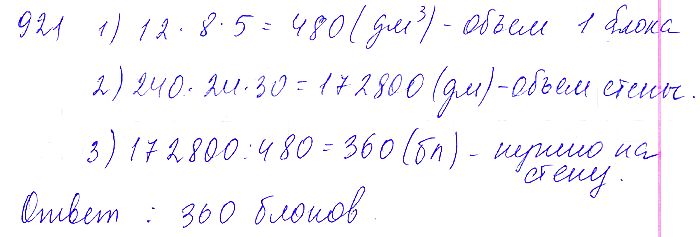 921 1) 12 · 8 · 5 = 480 (дм³) - объем 1 блока
2) 240 · 24 · 30 = 172800 (дм) - объем стены.
3) 172800 : 480 = 360 (бл) - нужно на
стену.
Ответ : 360 блоков.